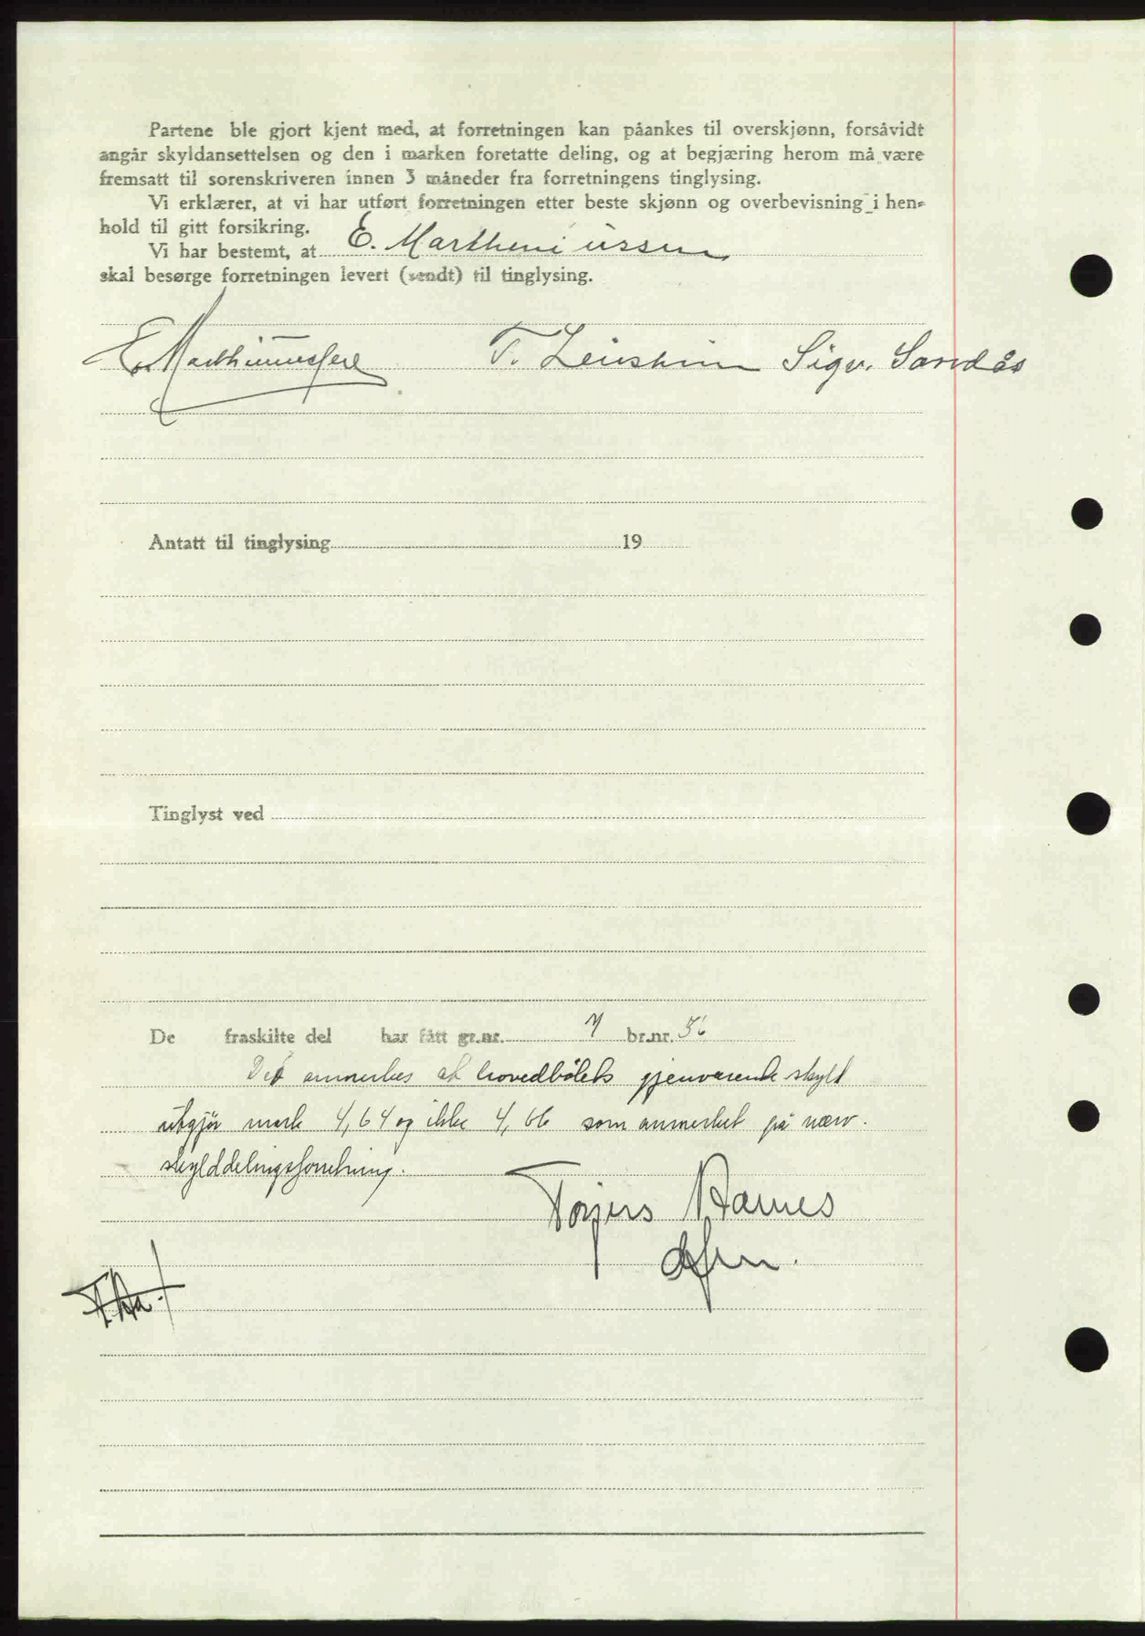 Partene ble gjort kjent med, at forretningen kan påankes til overskjønn, forsåvidt
angår skyldansettelsen og den i marken foretatte deling, og at begjæring herom må være
fremsatt til sorenskriveren innen 3 måneder fra forretningens tinglysing.
Vi erklærer, at vi har utført forretningen etter beste skjønn og overbevisning i hen-
hold til gitt forsikring.
Vi har bestemt, at E. Martheniussen
skal besørge forretningen levert (sendt) til tinglysing.
E. Martheniussen T. Sigv. Sandås
Antatt til tinglysing 19
Tinglyst ved
De fraskilte del har fått gr.nr. br.nr. 56
Det anmerkes at hovedbølets gjenværende skyld
utgjør mark 4,64 og ikke 4,66 som anmerket på nærv.
skylddelingsforretning.
Torjers